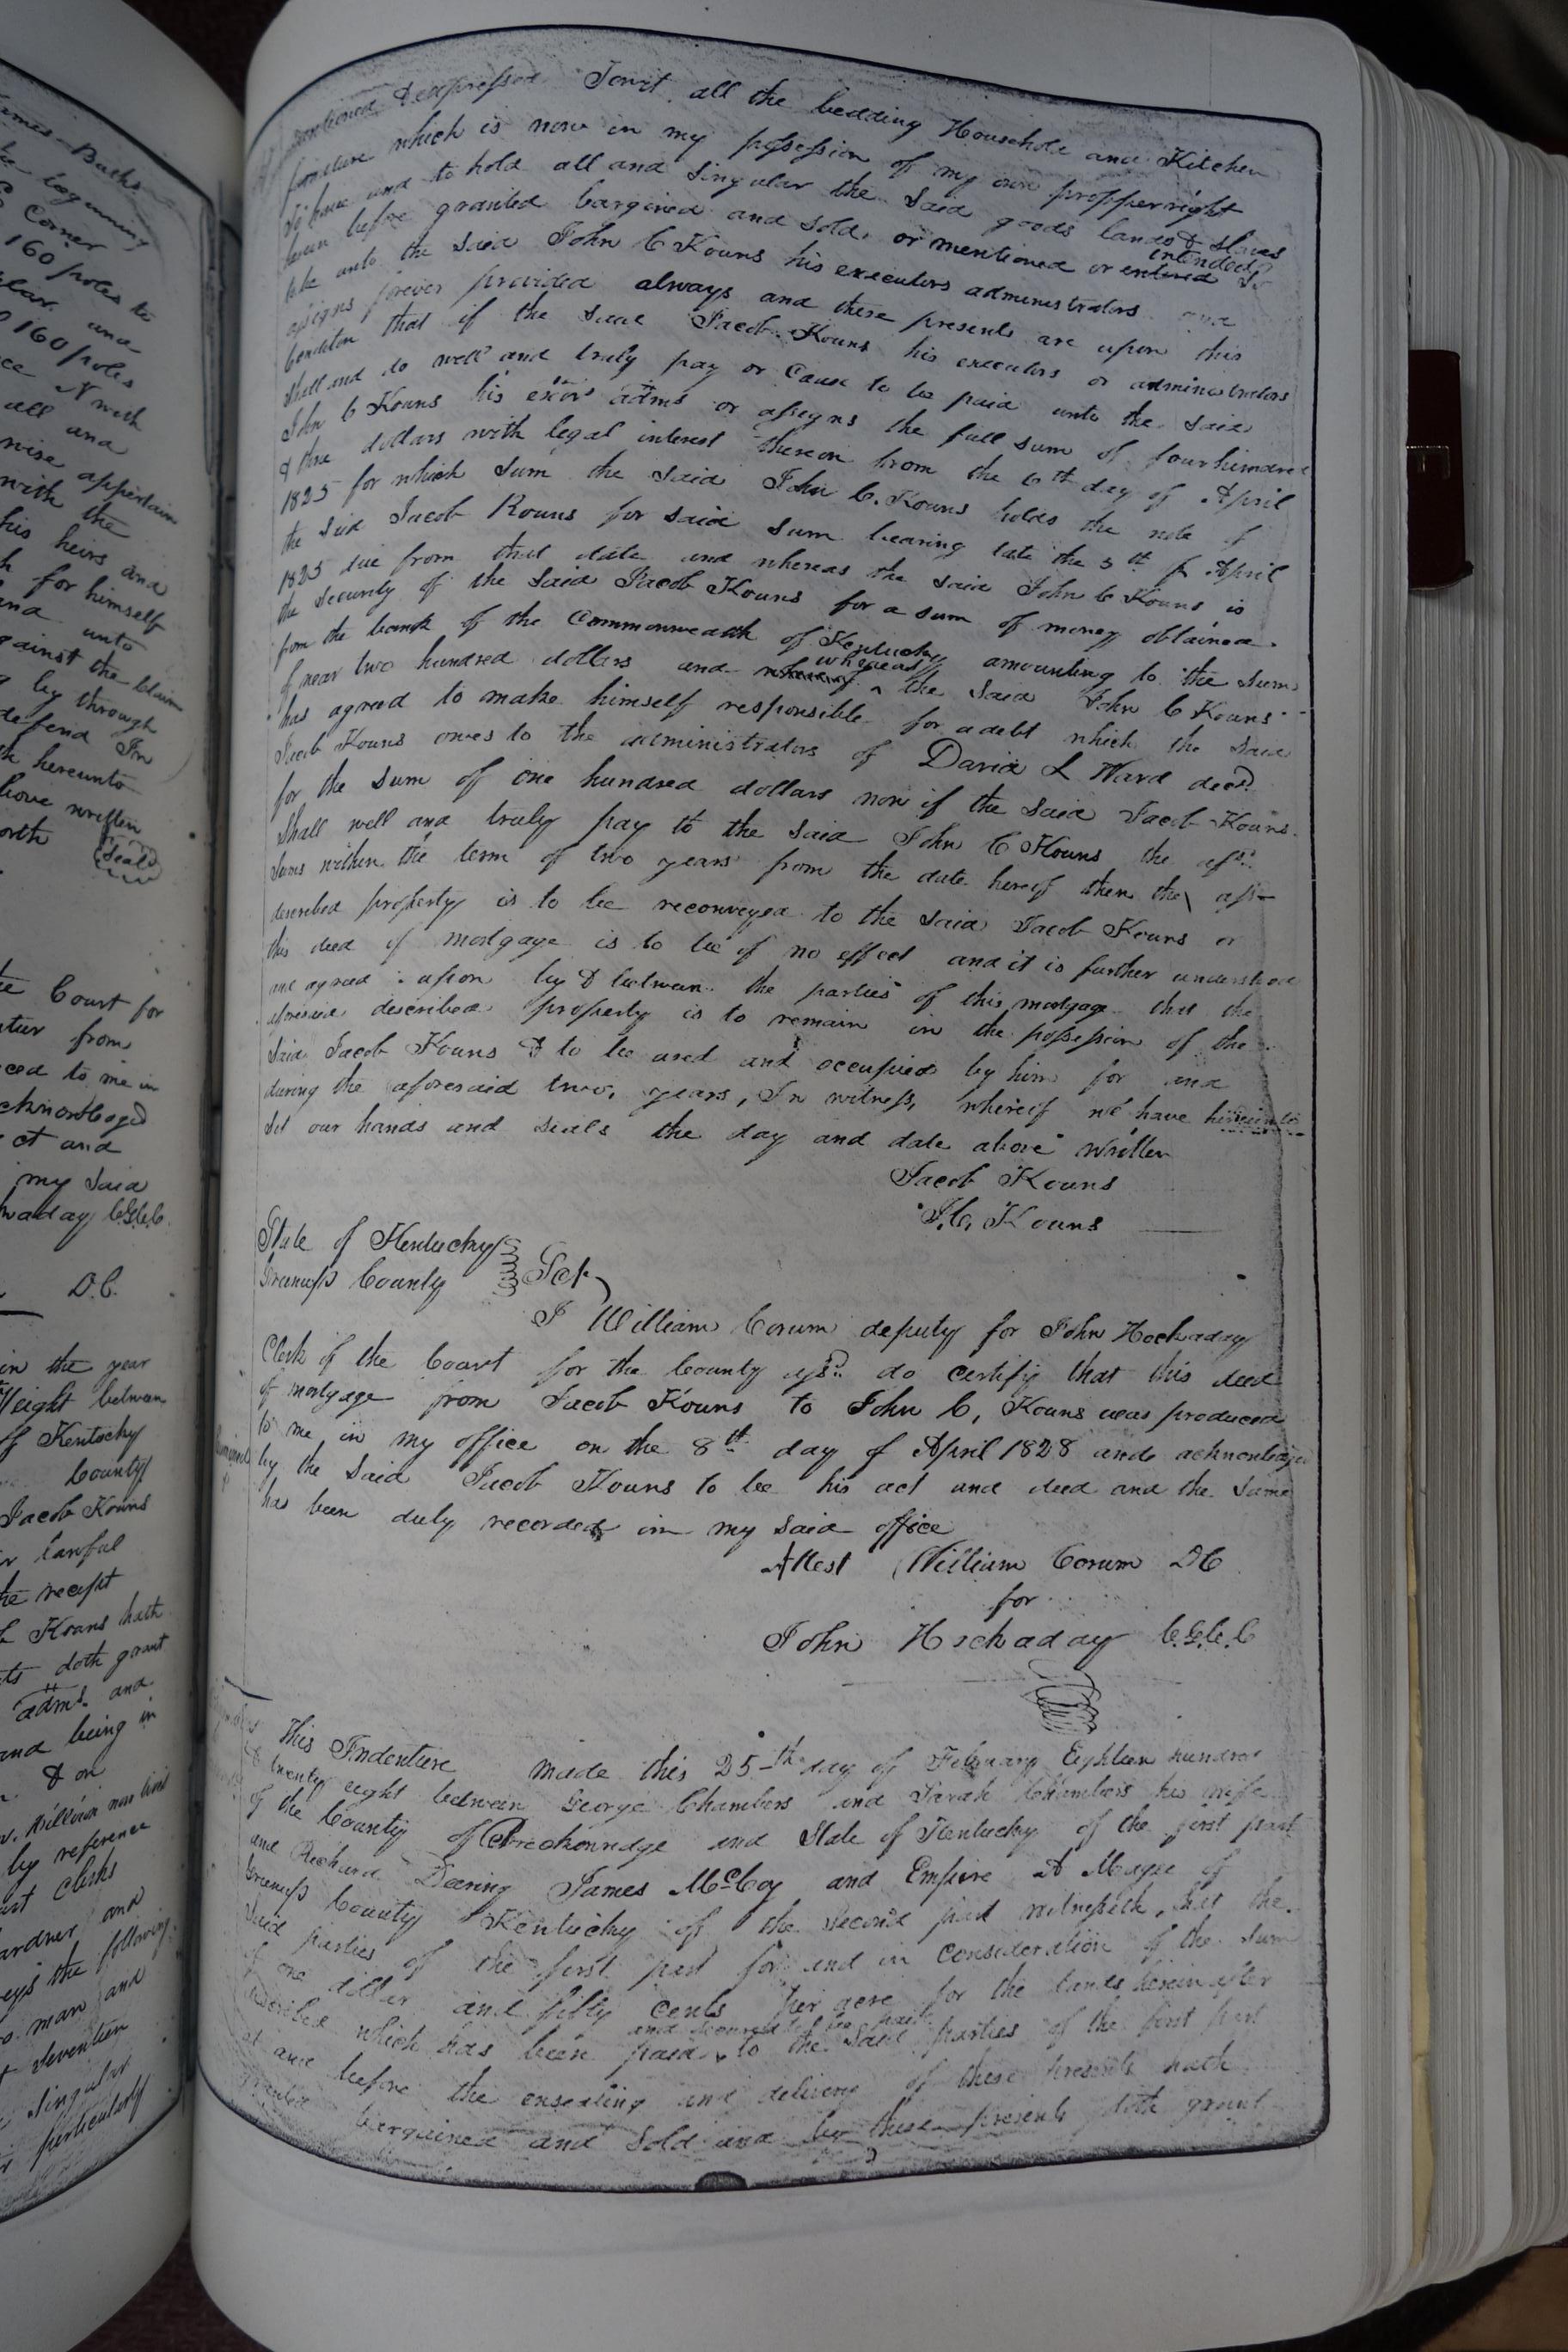 James Burks
beginning
Corner
160 poles to
and
160 poles
North
all and
wise appertain
with the
his heirs and
for himself
and unto
against the claim
by through
defend In
hereunto
above written
Seal
Court for
from
to me in
acknowledged
act and
my said
D.C.
in the year
Eight between
of Kentucky
County
Jacob Kouns
lawful
the receipt
Kouns hath
doth grant
adms. and
and being in
& on
by reference
Clerks
Gardner and
the following
man and
seventeen
singular
particularly
mentioned & expressed Towit all the bedding Household and Kitchen
furniture which is now in my possession of my own propper right
To have and to hold all and Singular the said goods lands & Slaves
herein before granted bargined and sold, or mentioned or entered intended So
to be unto the said John C Kouns his executors administrators and
assigns forever provided always and these presents are upon this
Condition that if the said Jacob Kouns his executors or administrators
Shall and do well and truly pay or Cause to be paid unto the said
John C Kouns his exors adms or assigns the full sum of four hundred
& three dollars with legal interest thereon from the 6th day of April
1825 for which sum the said John C. Kouns holds the note of
the sid Jacob Kouns for said sum bearing date the 5th of April
1825 due from that date and whereas the said John C Kouns is
the Security of the said Jacob Kouns for a sum of money obtained
from the bank of the Commonwealth of Kentucky amounting to the sum
of near two hundred dollars and whereas the said John C Kouns
has agreed to make himself responsible for a debt which the said
Jacob Kouns owes to the administrators of David L Ward decd
for the sum of one hundred dollars now if the said Jacob Kouns
Shall well and truly pay to the said John C Kouns the afsd
Sums within the term of two years from the date hereof then the afs
described property is to be reconveyed to the said Jacob Kouns or
this deed of mortgage is to be of no effect and it is further understood
and agreed upon by & between the parties of this mortgage that the
aforesaid described property is to remain in the possession of the
Said Jacob Kouns & to be used and occupied by him for and
during the aforesaid two, years, In witness, whereof we have hereunto
Set our hands and seals the day and date above written
Jacob Kouns
J.C. Kouns
State of Kentucky
Greenup County Sct
I William Corum deputy for John Hockaday
Clerk of the Court for the County afsd do certify that this deed
of mortgage from Jacob Kouns to John C, Kouns was produced
to me in my office on the 8th day of April 1828 and acknowledged
by the said Jacob Kouns to be his act and deed and the same
has been duly recorded in my said office
Attest William Corum DC
for
John Hockaday C.G.C.C
This Indenture made this 25th day of February Eighteen hundred
& twenty eight between George Chambers and Sarah Chambers his wife
of the County of Breckonridge and State of Kentucky of the first part
and Richard Deering James McCoy and Empire A Magee of
Greenup County Kentucky of the Second part witnesseth, that the
Said parties of the first part for and in consideration of the sum
of one dollar and fifty cents per acre for the lands herein after
described which has been paid and secured to be paid to the said parties of the first part
at and before the ensealing and delivery of these presents hath
granted bargained and Sold and by these presents doth grant